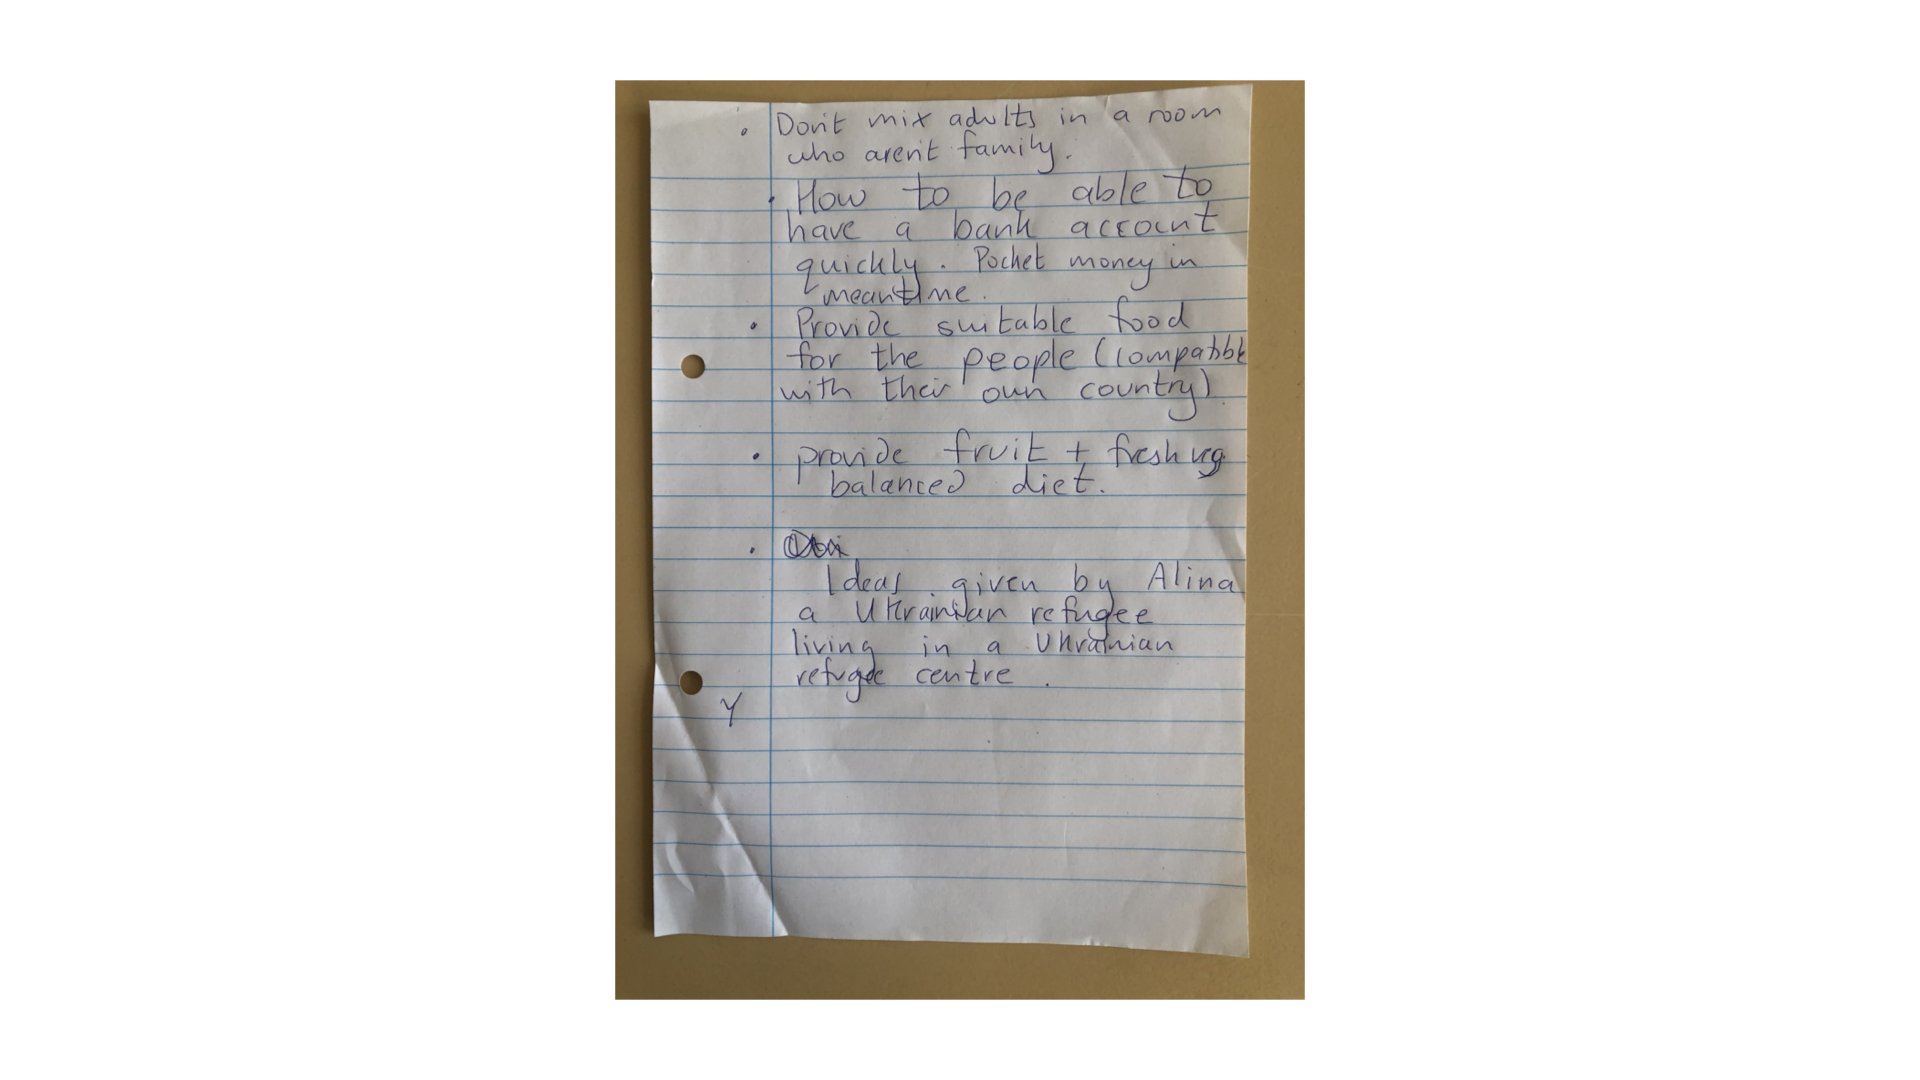 • Don't mix adults in a room
who aren't family.
• How to be able to
have a bank account
quickly. Pocket money in
meantime.
• Provide suitable food
for the people (compatible
with their own country)
• provide fruit + fresh veg
balanced diet.
•
Ideas given by Alina
a Ukrainian refugee
living in a Ukrainian
refugee centre.
Y